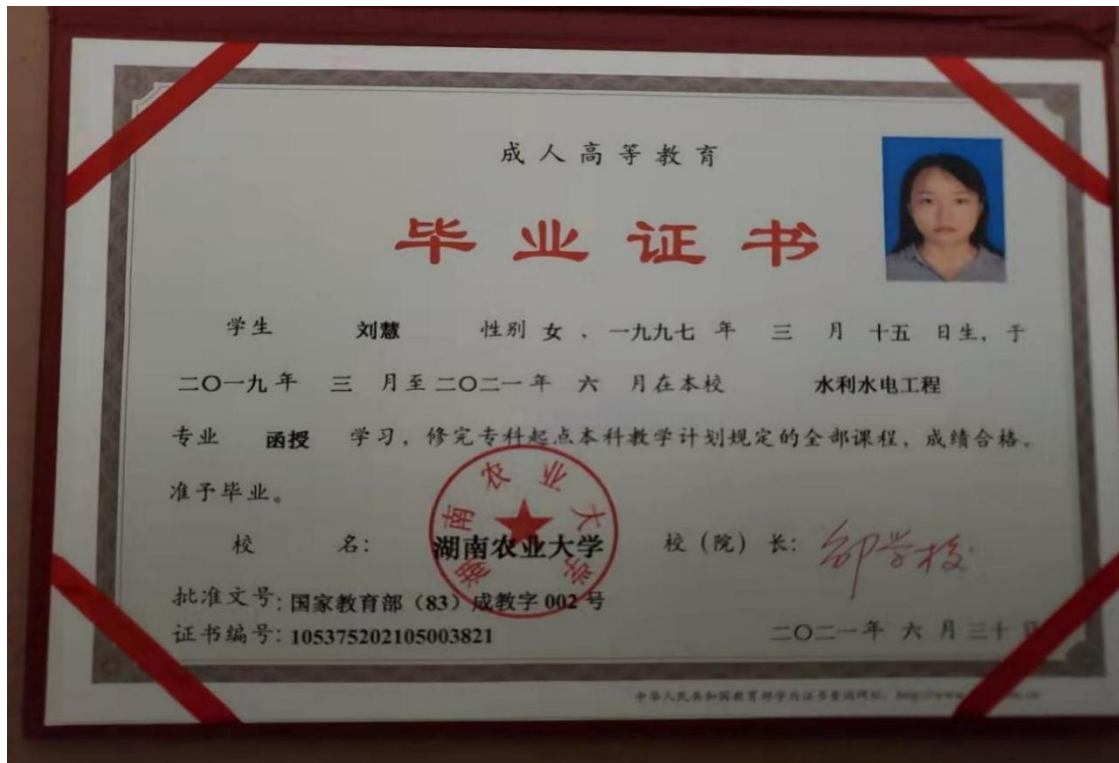 成人高等教育
毕业证书
学生 刘慧 性别 女，一九九七 年 三 月 十五 日生，于
二〇一九 年 三 月至 二〇二一 年 六 月在本校 水利水电工程
专业 函授 学习，修完专科起点本科教学计划规定的全部课程，成绩合格，
准予毕业。
湖南农业大学
校 名： 湖南农业大学 校（院）长： 邹学校
批准文号：国家教育部（83）成教字 002 号
证书编号：105375202105003821 二〇二一年 六 月 三十 日
中华人民共和国教育部学历证书查询网址：http://www.